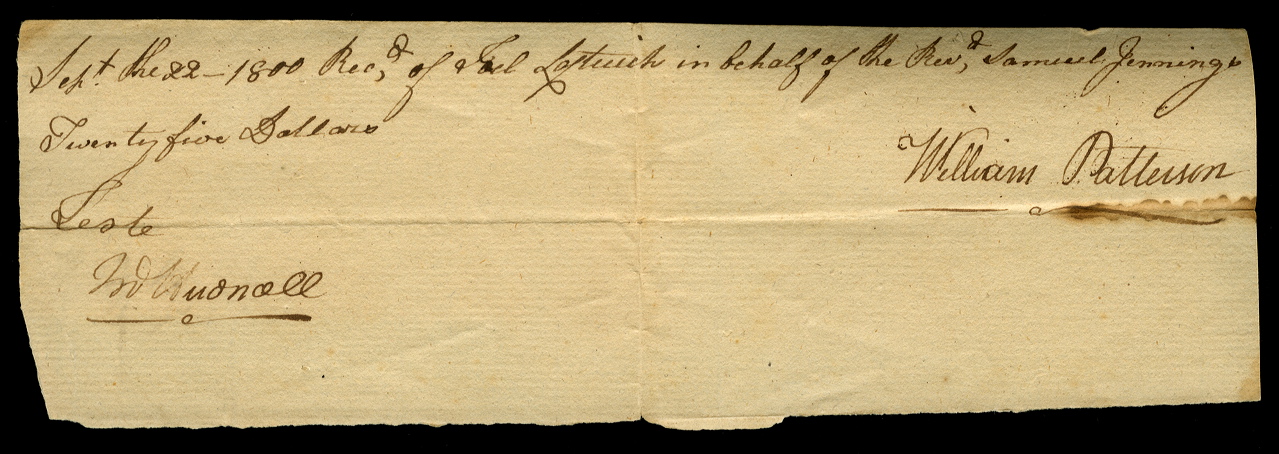 Sept the 22 - 1800 Recd of Joel Leftwich in behalf of the Revd Samuel Jennings
Twenty five Dollars
William Patterson
Teste
Hudnall